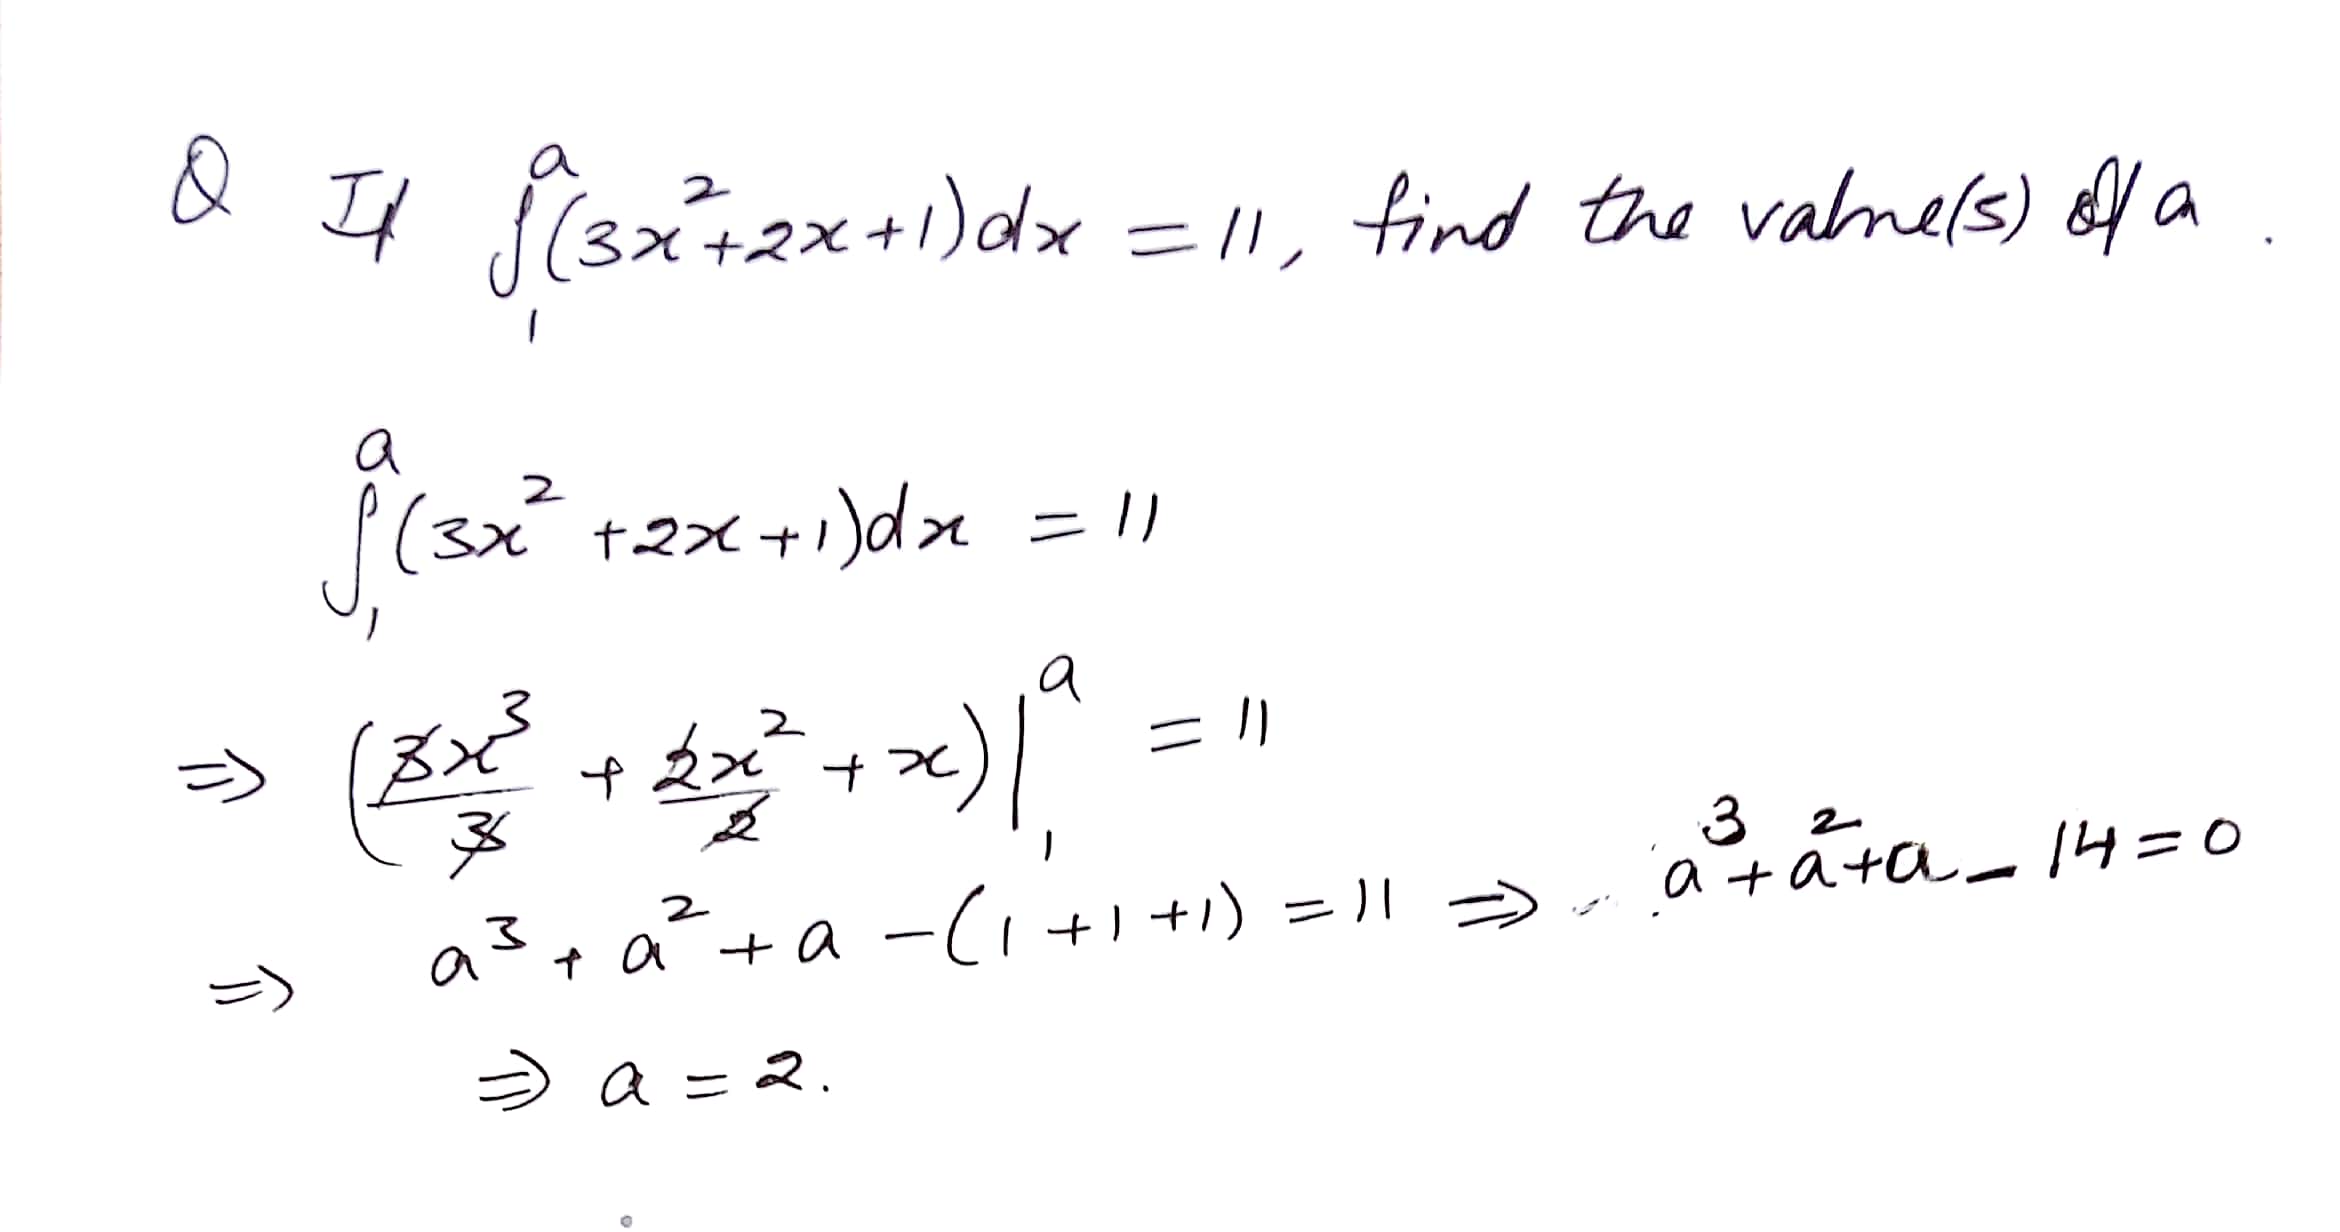 Q If ∫₁ᵃ(3x²+2x+1)dx = 11, find the value(s) of a.
∫₁ᵃ(3x²+2x+1)dx = 11
⇒ (3x³/3 + 2x²/2 + x)|₁ᵃ = 11
⇒ a³ + a² + a - (1+1+1) = 11 ⇒ a³+a²+a-14=0
⇒ a = 2.